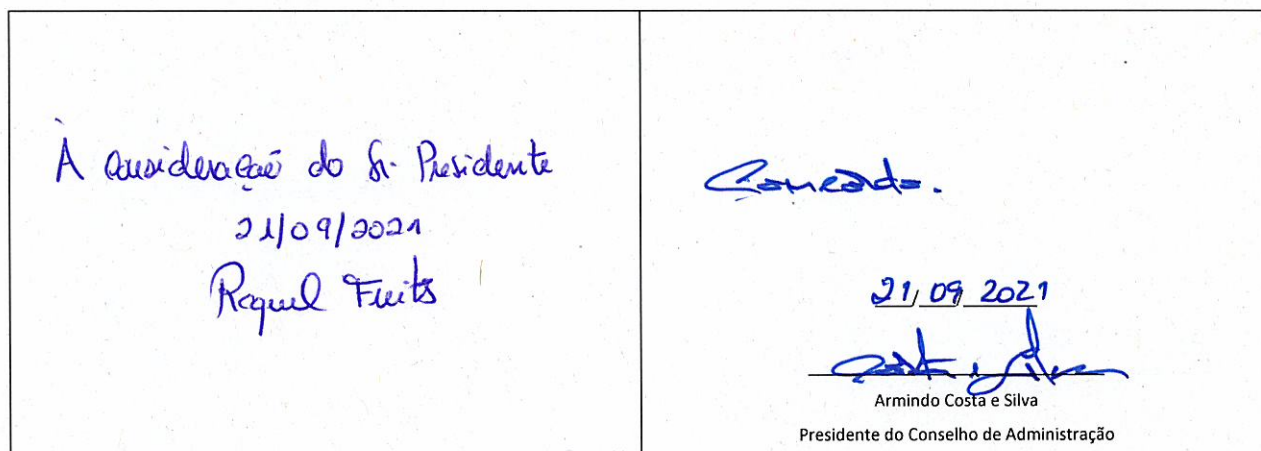 À consideração do Sr. Presidente
21/09/2021
Raquel Freitas
Concordo.
21/09/2021
Costa e Silva
Armindo Costa e Silva
Presidente do Conselho de Administração